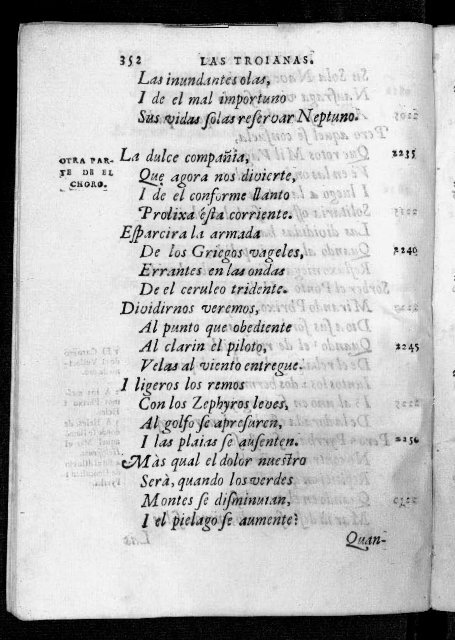 352 LAS TROIANAS.
Las inundantes olas,
I de el mal importuno
Sus vidas solas reservar Neptuno.
OTRA PAR-
TE DE EL
CHORO.
La dulce compañia, 2235
Que agora nos divierte,
I de el conforme llanto
Prolixa ésta corriente.
Esparcira la armada
De los Griegos vageles, 2240
Errantes en las ondas
De el ceruleo tridente.
Dividirnos veremos,
Al punto que obediente
Al clarin el piloto, 2245
Velas al viento entregue.
I ligeros los remos
Con los Zephyros leves,
Al golfo se apresuren,
I las plaias se ausenten. 2250
Màs qual el dolor nuestro
Serà, quando los verdes
Montes se disminuian,
I el pielago se aumente?
Quan-